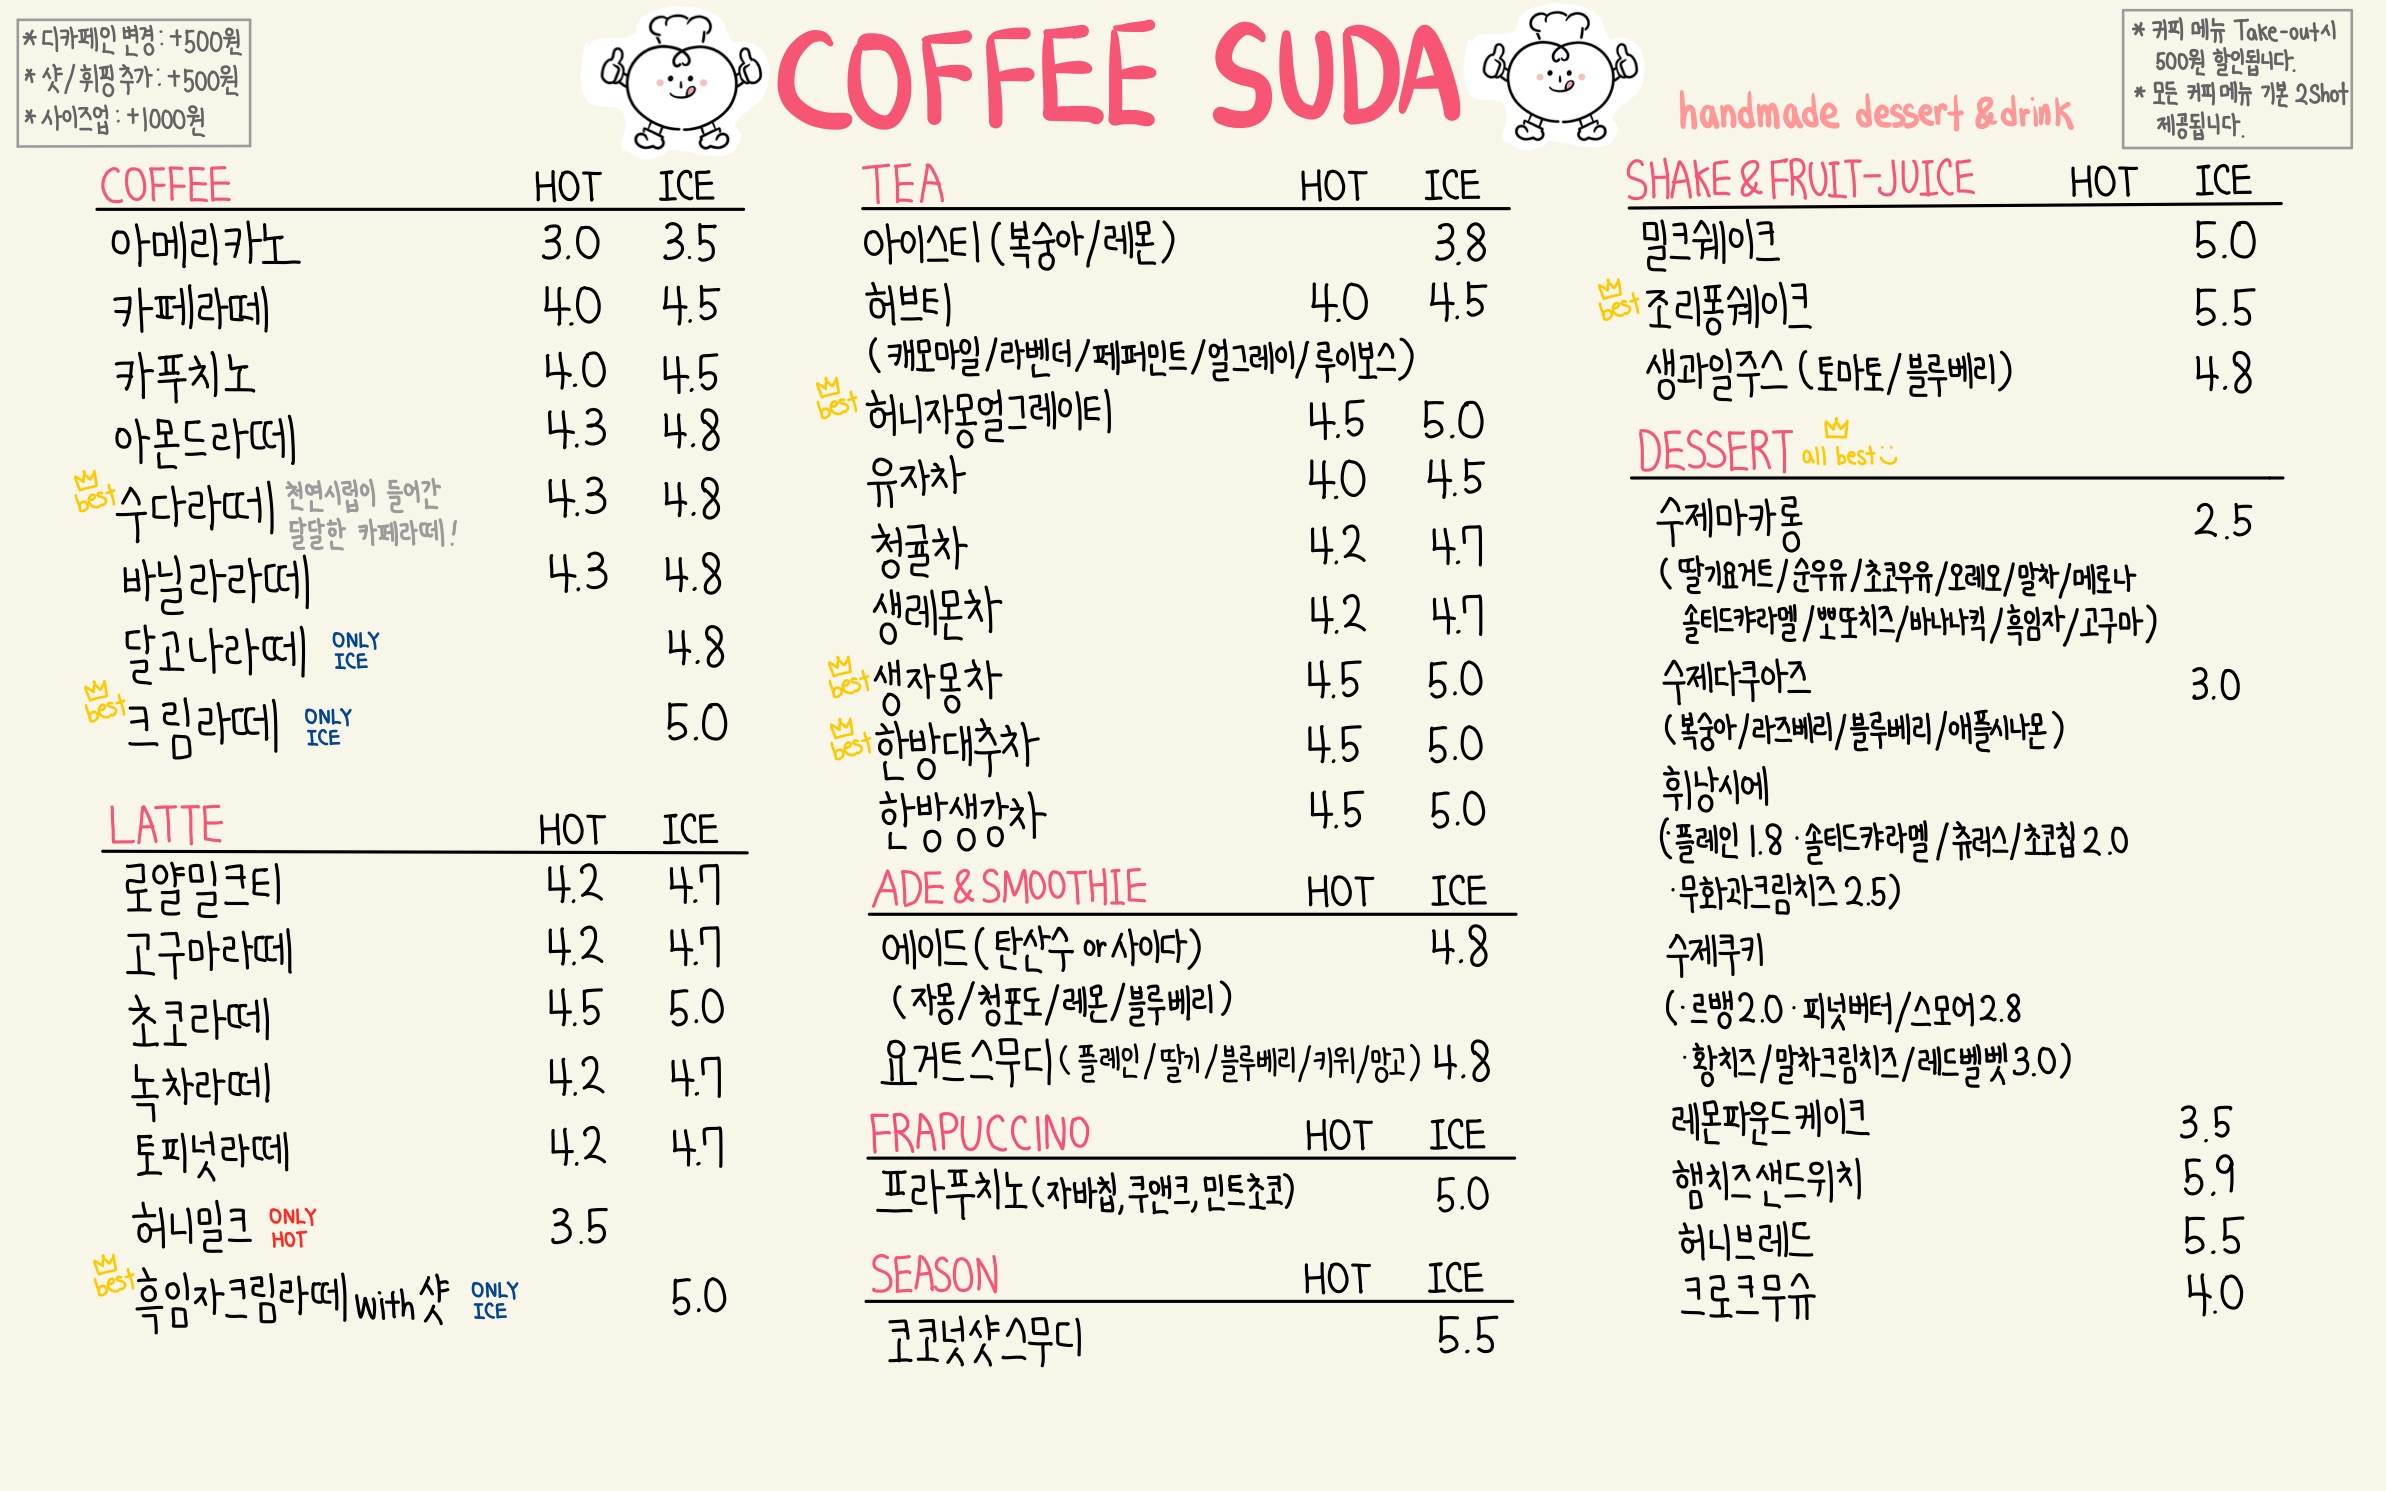 * 디카페인 변경 : +500원
* 샷/휘핑 추가 : +500원
* 사이즈업 : +1000원
COFFEE SUDA
handmade dessert & drink
* 커피 메뉴 Take-out시
500원 할인됩니다.
* 모든 커피 메뉴 기본 2Shot
제공됩니다.
COFFEE HOT ICE
아메리카노 3.0 3.5
카페라떼 4.0 4.5
카푸치노 4.0 4.5
아몬드라떼 4.3 4.8
best 수다라떼 천연시럽이 들어간 4.3 4.8
달달한 카페라떼!
바닐라라떼 4.3 4.8
달고나라떼 ONLY ICE 4.8
best 크림라떼 ONLY ICE 5.0
LATTE HOT ICE
로얄밀크티 4.2 4.7
고구마라떼 4.2 4.7
초코라떼 4.5 5.0
녹차라떼 4.2 4.7
토피넛라떼 4.2 4.7
허니밀크 ONLY HOT 3.5
best 흑임자크림라떼 with 샷 ONLY ICE 5.0
TEA HOT ICE
아이스티 (복숭아/레몬) 3.8
허브티 4.0 4.5
(캐모마일/라벤더/페퍼민트/얼그레이/루이보스)
best 허니자몽얼그레이티 4.5 5.0
유자차 4.0 4.5
청귤차 4.2 4.7
생레몬차 4.2 4.7
best 생자몽차 4.5 5.0
best 한방대추차 4.5 5.0
한방생강차 4.5 5.0
ADE & SMOOTHIE HOT ICE
에이드 (탄산수 or 사이다) 4.8
(자몽/청포도/레몬/블루베리)
요거트스무디 (플레인/딸기/블루베리/키위/망고) 4.8
FRAPUCCINO HOT ICE
프라푸치노 (자바칩, 쿠앤크, 민트초코) 5.0
SEASON HOT ICE
코코넛샷스무디 5.5
SHAKE & FRUIT-JUICE HOT ICE
밀크쉐이크 5.0
best 조리퐁쉐이크 5.5
생과일주스 (토마토/블루베리) 4.8
DESSERT all best
수제마카롱 2.5
(딸기요거트/순우유/초코우유/오레오/말차/메로나
솔티드캬라멜/뽀또치즈/바나나킥/흑임자/고구마)
수제다쿠아즈 3.0
(복숭아/라즈베리/블루베리/애플시나몬)
휘낭시에
(·플레인 1.8 ·솔티드캬라멜/츄러스/초코칩 2.0
·무화과크림치즈 2.5)
수제쿠키
(·르뱅 2.0 ·피넛버터/스모어 2.8
·황치즈/말차크림치즈/레드벨벳 3.0)
레몬파운드케이크 3.5
햄치즈샌드위치 5.9
허니브레드 5.5
크로크무슈 4.0